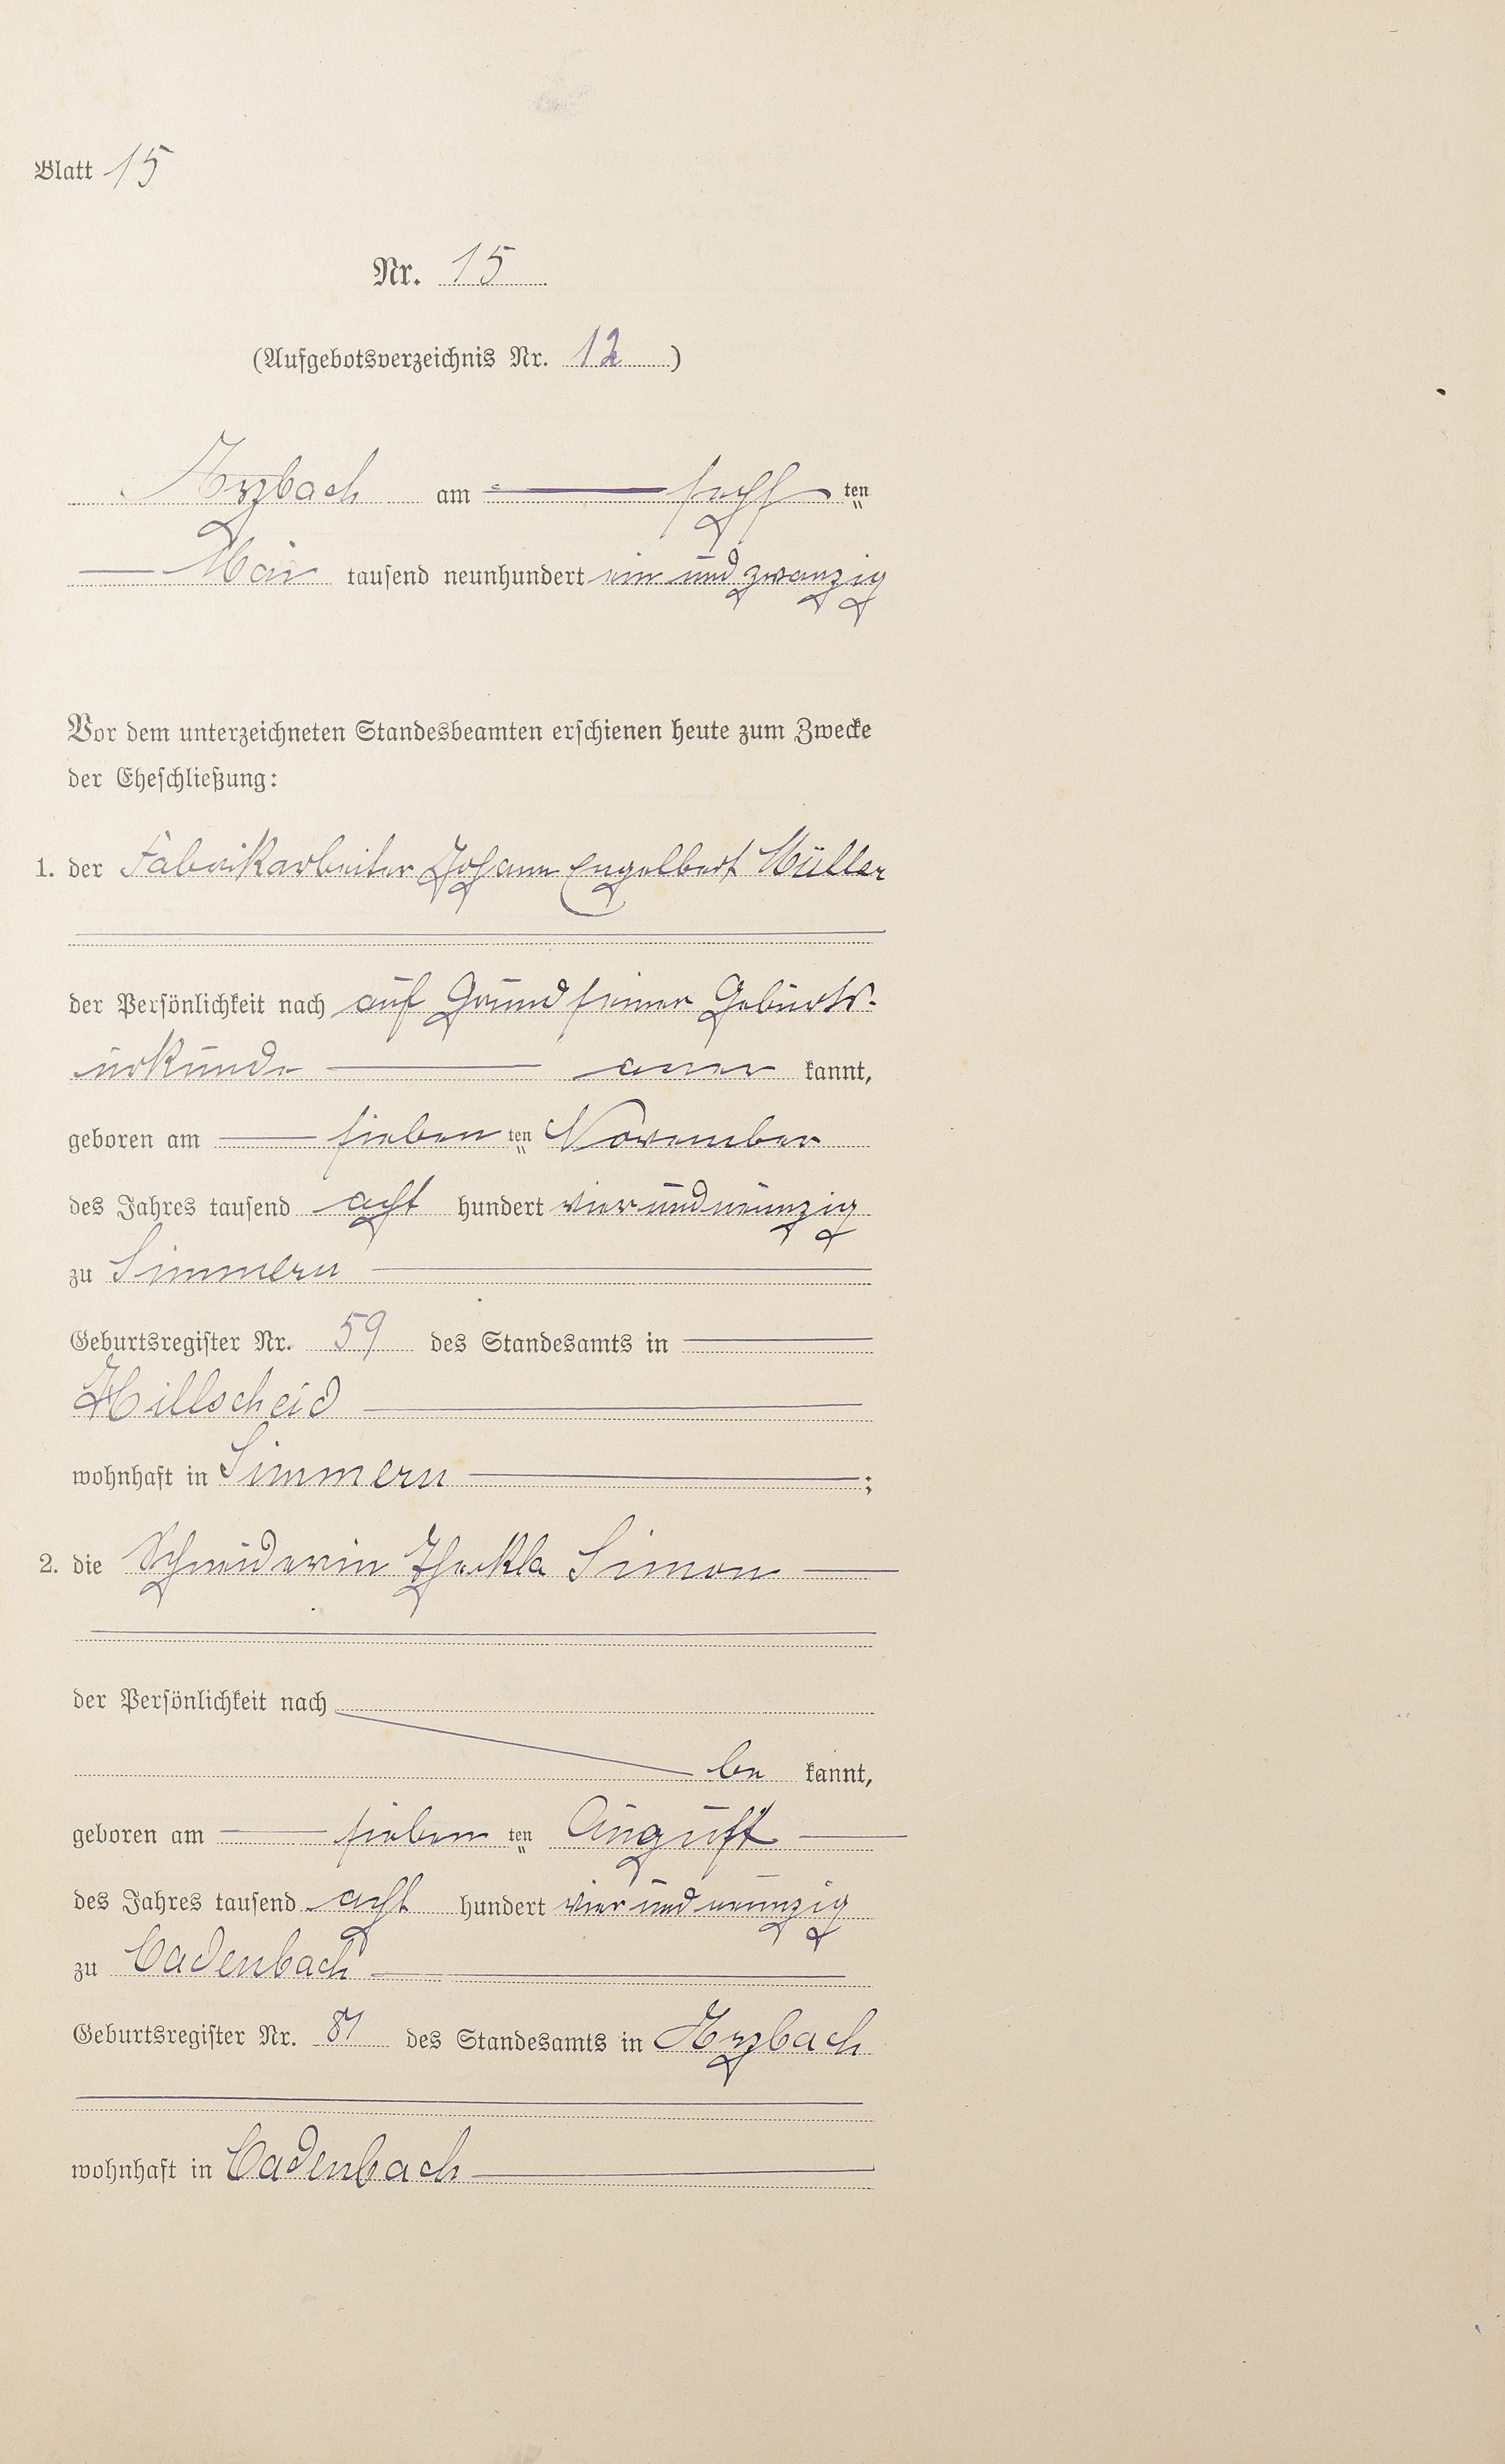 Blatt 15
Nr. 15
(Aufgebotsverzeichnis Nr. 12)
Arzbach am sechsten
Mai tausend neunhundert ein und zwanzig
Vor dem unterzeichneten Standesbeamten erschienen heute zum Zwecke
der Eheschließung:
1. der Fabrikarbeiter Johann Engelbert Müller
der Persönlichkeit nach auf Grund seiner Geburts-
urkunde aner kannt,
geboren am sieben ten November
des Jahres tausend acht hundert vier und neunzig
zu Simmern
Geburtsregister Nr. 59 des Standesamts in
Hillscheid
wohnhaft in Simmern ;
2. die Schneiderin Theckla Simon
der Persönlichkeit nach
be kannt,
geboren am sieben ten August
des Jahres tausend acht hundert vier und neunzig
zu Cadenbach
Geburtsregister Nr. 87 des Standesamts in Arzbach
wohnhaft in Cadenbach